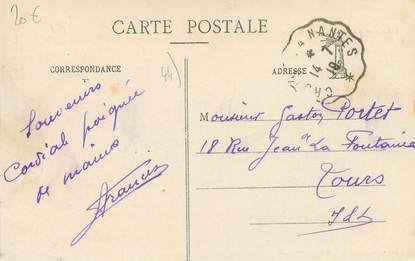 20 €
CARTE POSTALE
CORRESPONDANCE
ADRESSE
(44)
NANTES
14 - 7
18
Souvenirs
Cordial poignée
de mains
Francis
Monsieur Gaston Portet
18 Rue Jean La Fontaine
Tours
I&L